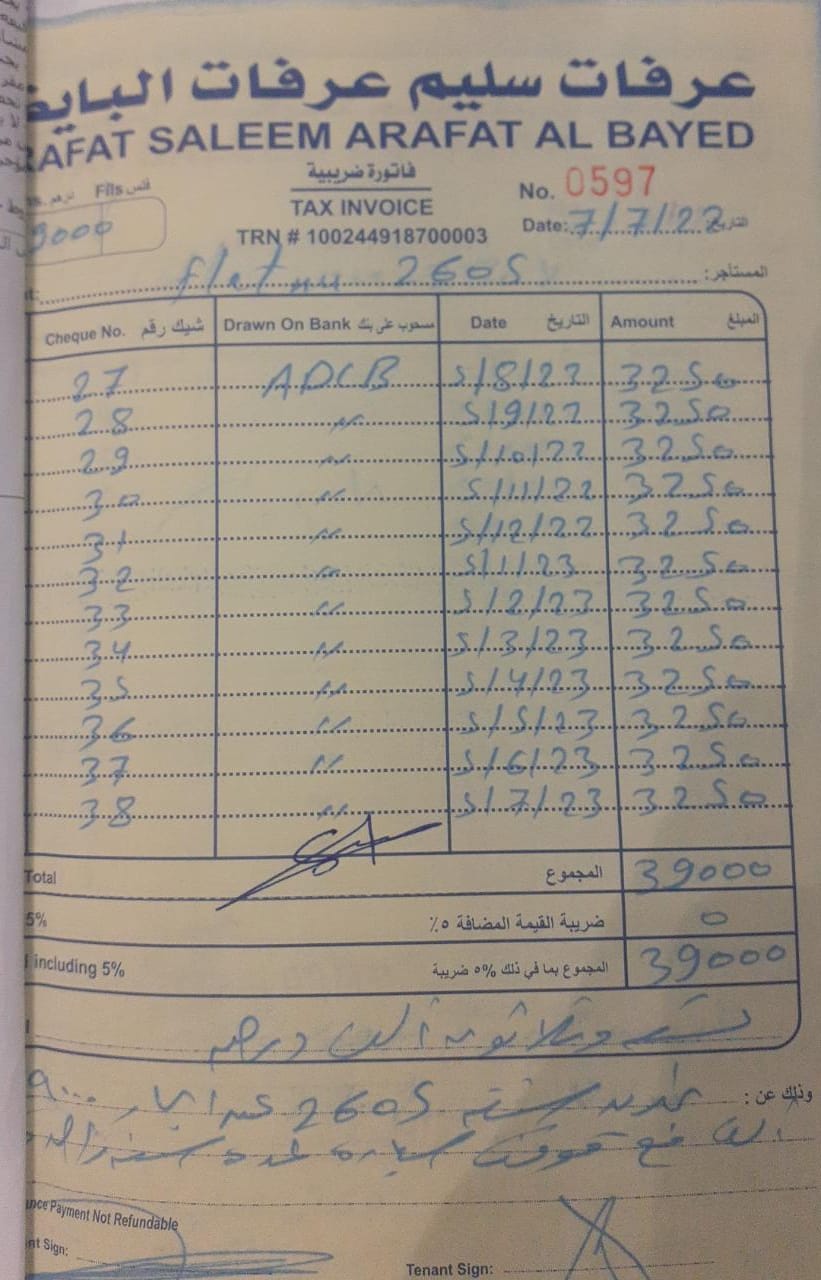 عرفات سليم عرفات البايض
RAFAT SALEEM ARAFAT AL BAYED
فاتورة ضريبية
TAX INVOICE
TRN # 100244918700003
No. 0597
Date: 7/7/22 التاريخ
درهم Fils فلس
9000
flat 2605 المستأجر:
Cheque No. شيك رقم Drawn On Bank مسحوب على بنك Date التاريخ Amount المبلغ
27 ADCB 5/8/22 3250
28 " 5/9/22 3250
29 " 5/10/22 3250
30 " 5/11/22 3250
31 " 5/12/22 3250
32 " 5/1/23 3250
33 " 5/2/23 3250
34 " 5/3/23 3250
35 " 5/4/23 3250
36 " 5/5/23 3250
37 " 5/6/23 3250
38 " 5/7/23 3250
Total المجموع 39000
5% ضريبة القيمة المضافة ٥٪ 0
including 5% المجموع بما في ذلك ٥% ضريبة 39000
تسعة وثلاثون ألف درهم
وذلك عن: 2605
سيارة لمدة سنة
Payment Not Refundable
Sign:
Tenant Sign: